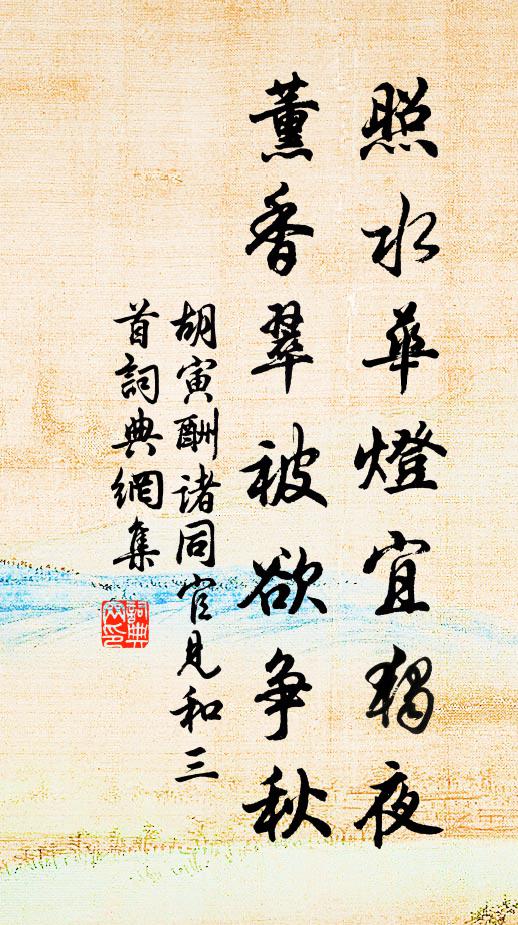 照水華燈宜独夜
薰香翠被欲争秋
胡寅酬诸同官見和三
首詞典網集
詞典